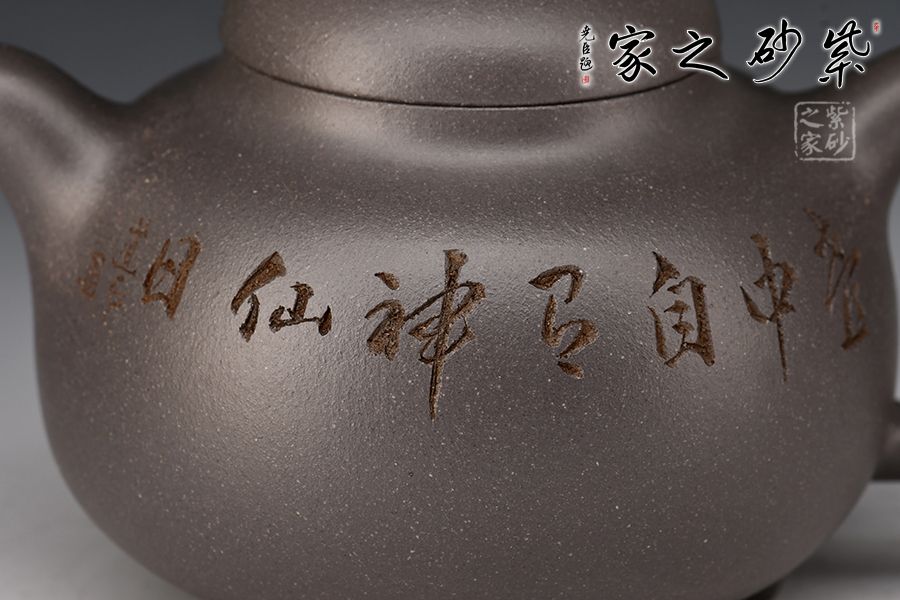 紫砂之家
尧臣题
紫砂之家
中自有神仙日